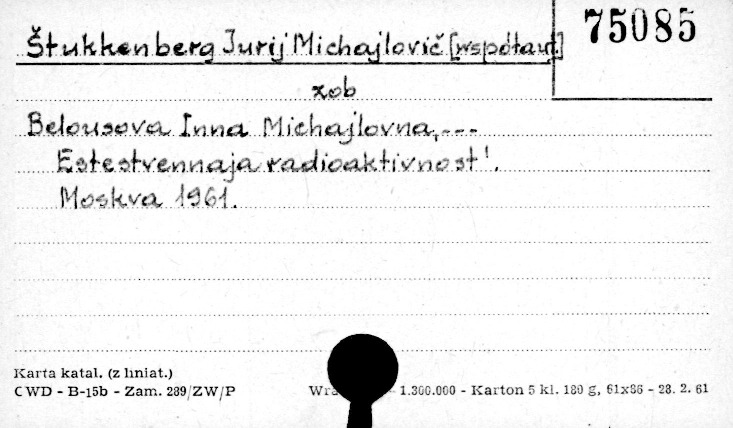 75085
Štukkenberg Jurij Michajlovič [współaut]
zob
Belousova Inna Michajlovna, ---
Estestvennaja radioaktivnost'.
Moskva 1961.
Karta katal. (z liniat.)
CWD - B-15b - Zam. 289/ZW/P
1.300.000 - Karton 5 kl. 180 g, 61x86 - 28. 2. 61